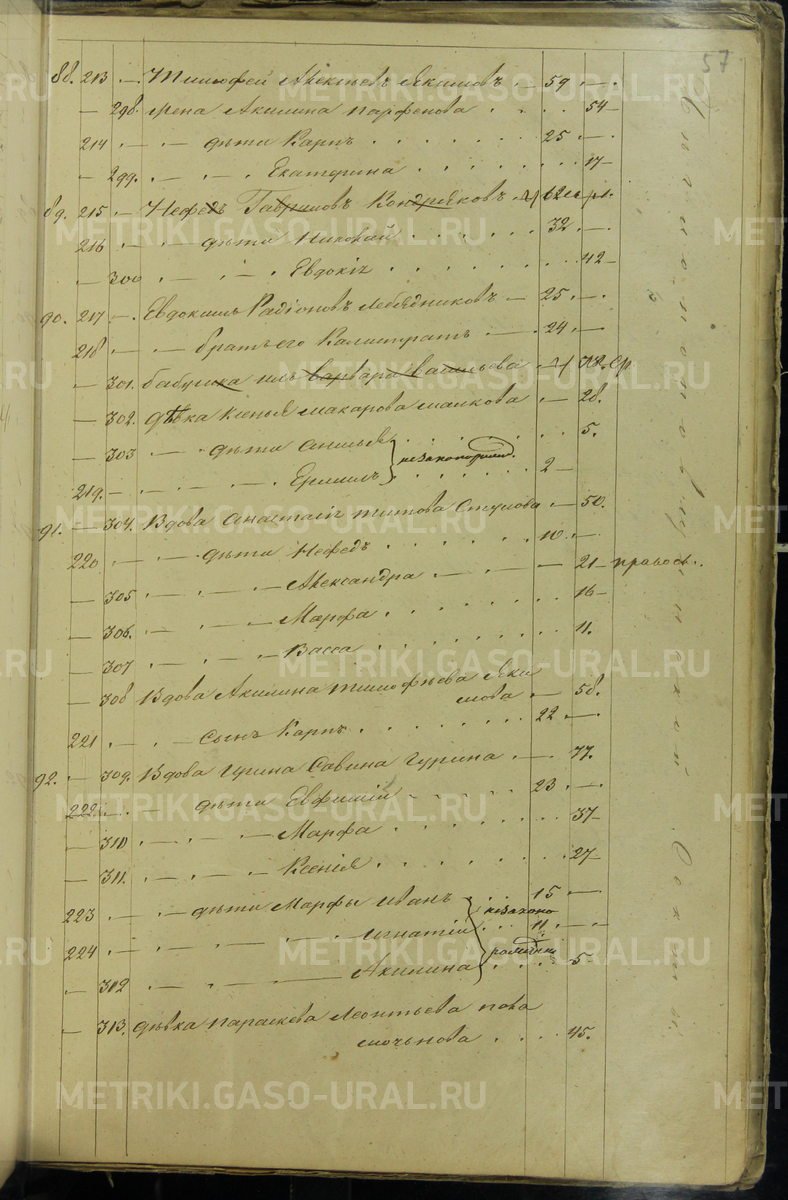 57
88. 213 — Тимофей Алексеев Якимов — 59 —
— 298. жена Акилина Парфенова 54 —
214 — дѣти Карпъ 25 —
— 299. — Екатерина 17 —
89. 215 — Нефедъ Гавриловъ Кондряковъ
216 — дѣти Николай 32 —
— 300 — Евдокія 42 —
90. 217 — Евдокимъ Радіоновъ Лебедниковъ — 25 —
218 — братъ его Калистратъ — 24 —
— 301. бабушка ихъ Варвара Васильева
— 302. дѣвка Ксенья Макарова — 28.
— 303 — дѣти 5.
219. — Ермилъ незаконорожд. 2 —
91. — 304. Вдова Анастасія Титова — 50.
220 — дѣти Нефедъ 10. —
— 305 — Александра — 21 — правосл.
— 306. — Марфа 16 —
— 307 — Васса 11.
— 308 Вдова Акилина Тимофѣева Яки
мова — 58.
221 — сынъ Карпъ 22 —
92. — 309. Вдова Ирина Савина Гурина — 77.
222 — дѣти Евфимій 23 —
— 310 — Марфа 37 —
— 311. — Ксенія 27 —
223 — дѣти Марфы Иванъ 15 —
224 — Игнатій незаконо 11 —
— 312 — Акилина рожденные 5
— 313. дѣвка Параскева Леонтьева
45.
METRIKI.GASO-URAL.RU